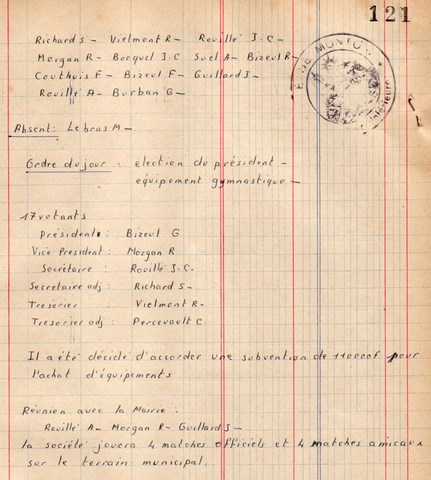 121
Richard S - Vielmont R - Rouillé J-C -
Morgan R - Becquel J-C Suel A - Bizeul R -
Couthuis F - Bizeul F - Guillard J -
Rouillé A - Burban G -
Absent : Lebras M -
Ordre du jour : élection du président -
équipement gymnastique -
17 votants
Président : Bizeul G
Vice Président : Morgan R
Secrétaire : Rouillé J-C-
Secretaire adj : Richard S -
Tresorier Vielmont R -
Tresorier adj : Percevault C
Il a été décidé d'accorder une subvention de 11000f pour
l'achat d'équipements
Réunion avec la Mairie :
Rouillé A - Morgan R - Guillard J -
la société jouera 4 matches officiels et 4 matches amicaux
sur le terrain municipal.